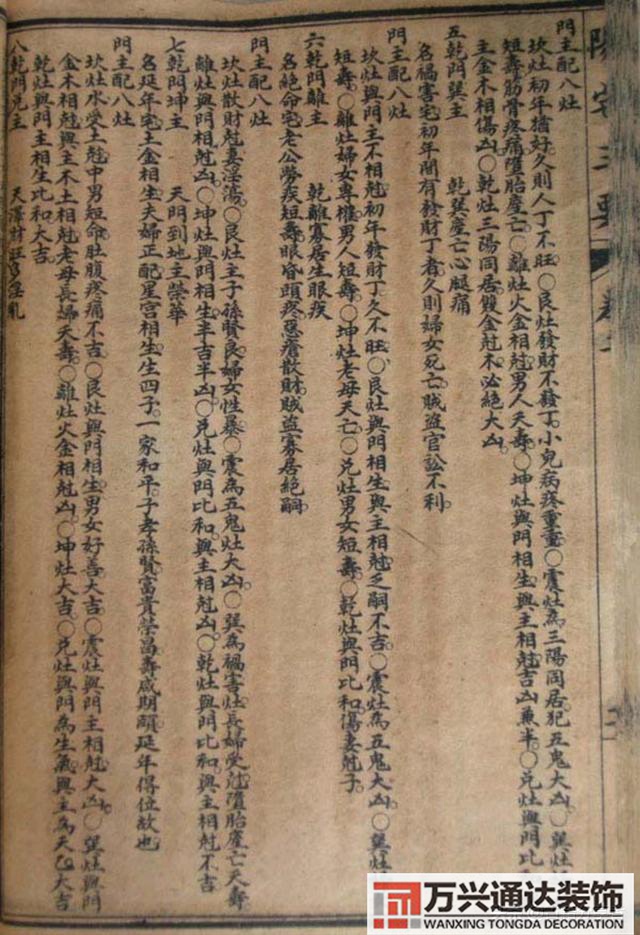 陽宅三要 卷二
門主配八灶
坎灶初年猶好久則人丁不旺○艮灶發財不發丁小兒病疼重重○震灶為三陽同居犯五鬼大凶○巽灶
短壽筋骨疼痛墮胎產亡○離灶火金相尅男人夭壽○坤灶與門相生與主相尅吉凶兼半○兌灶與門比
主金木相傷凶○乾灶三陽同居雙金尅木必絕大凶
五乾門巽主 乾巽產亡心腿痛
名禍害宅初年間有發財丁者久則婦女死亡賊盜官訟不利
門主配八灶
坎灶與門主不相尅初年發財丁久不旺○艮灶與門相生與主相尅乏嗣不吉○震灶為五鬼大凶○巽灶
短壽○離灶婦女專權男人短壽○坤灶老母夭亡○兌灶男女短壽○乾灶與門比和傷妻尅子
六乾門離主 乾離寡居生眼疾
名絕命宅老公勞疾短壽眼昏頭疼惡瘡散財賊盜寡居絕嗣
門主配八灶
坎灶散財尅妻淫蕩○艮灶主子孫賢良婦女性暴○震為五鬼灶大凶○巽為禍害灶長婦受尅墮胎產亡夭壽
離灶與門相尅凶○坤灶與門相生半吉半凶○兌灶與門比和與主相尅凶○乾灶與門比和與主相尅不吉
七乾門坤主 天門到地主榮華
名延年宅土金相生夫婦正配星宮相生生四子一家和平子孝孫賢富貴榮昌壽咸期頤延年得位故也
門主配八灶
坎灶水受土尅中男短命肚腹疼痛不吉○艮灶與門相生男女好善大吉○震灶與門主相尅大凶○巽灶與門
金木相尅與主木土相尅老母長婦夭壽○離灶火金相尅凶○坤灶大吉○兌灶與門為生氣與主為天乙大吉
乾灶與門主相生比和大吉
八乾門兌主 天澤財旺多淫亂
万兴通达装饰
WANXING TONGDA DECORATION